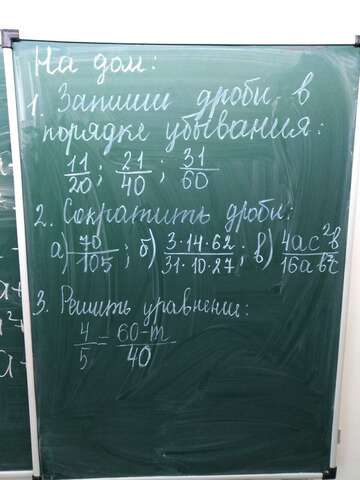 На дом:
1. Запиши дроби в
порядке убывания:
11/20; 21/40; 31/60
2. Сократить дроби:
а) 70/105; б) 3·14·62/31·10·27; в) 4ac²b/16ab²c
3. Решить уравнение:
4/5 = 60-m/40